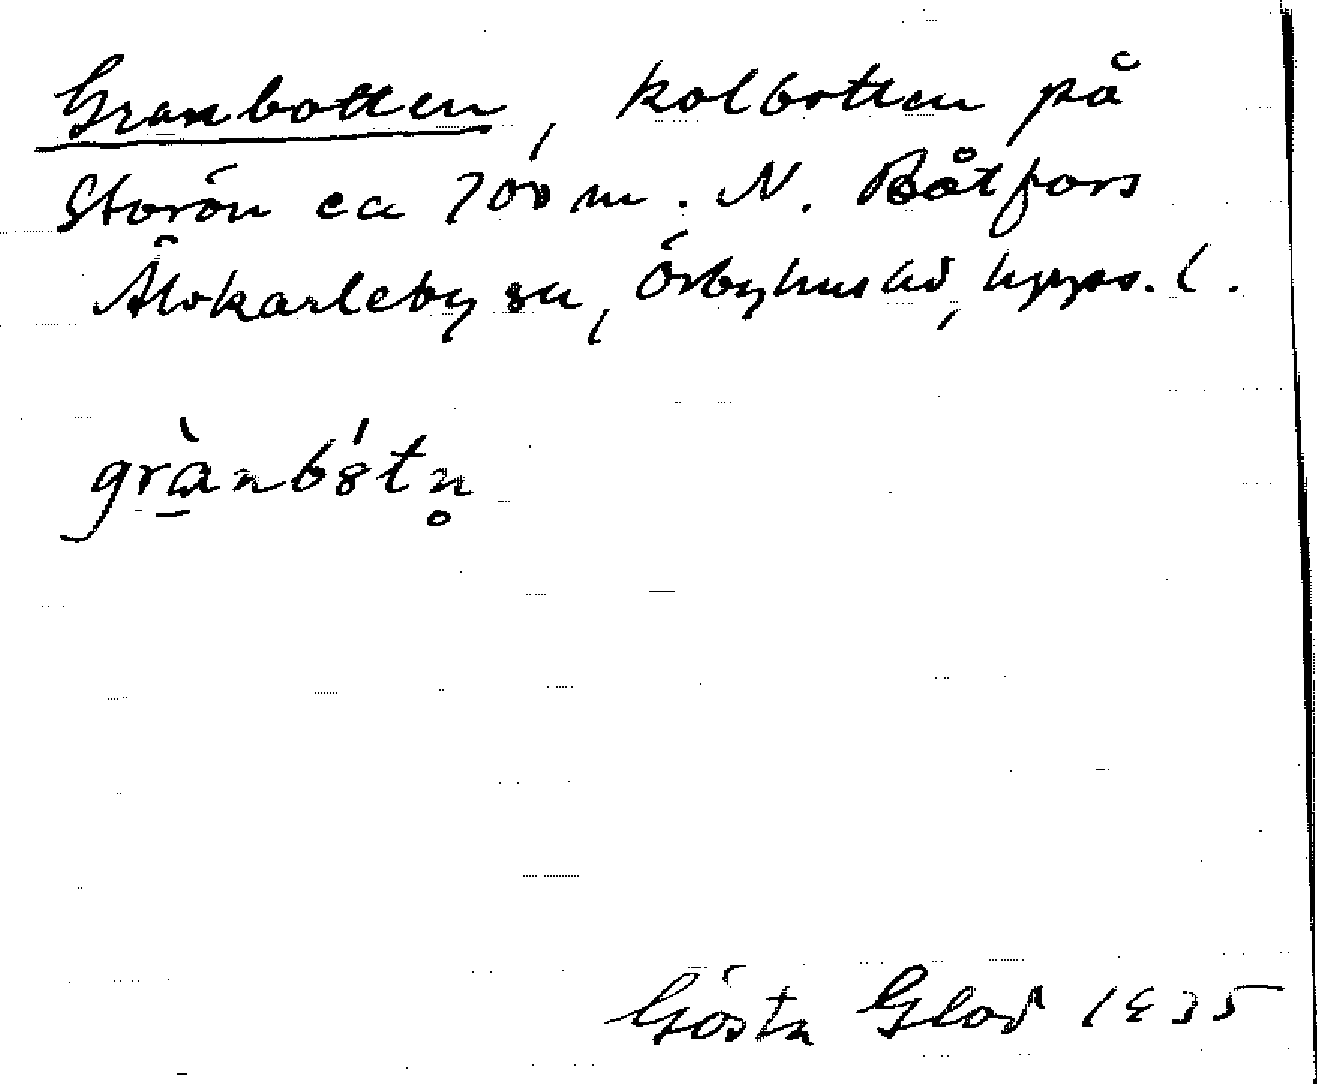 Granbotten, kolbotten på
Storön ca 700 m. N. Båtfors
Älvkarleby sn, Örbyhus hd, Upps. l.
grànbótn̥
Gösta Glad 1935